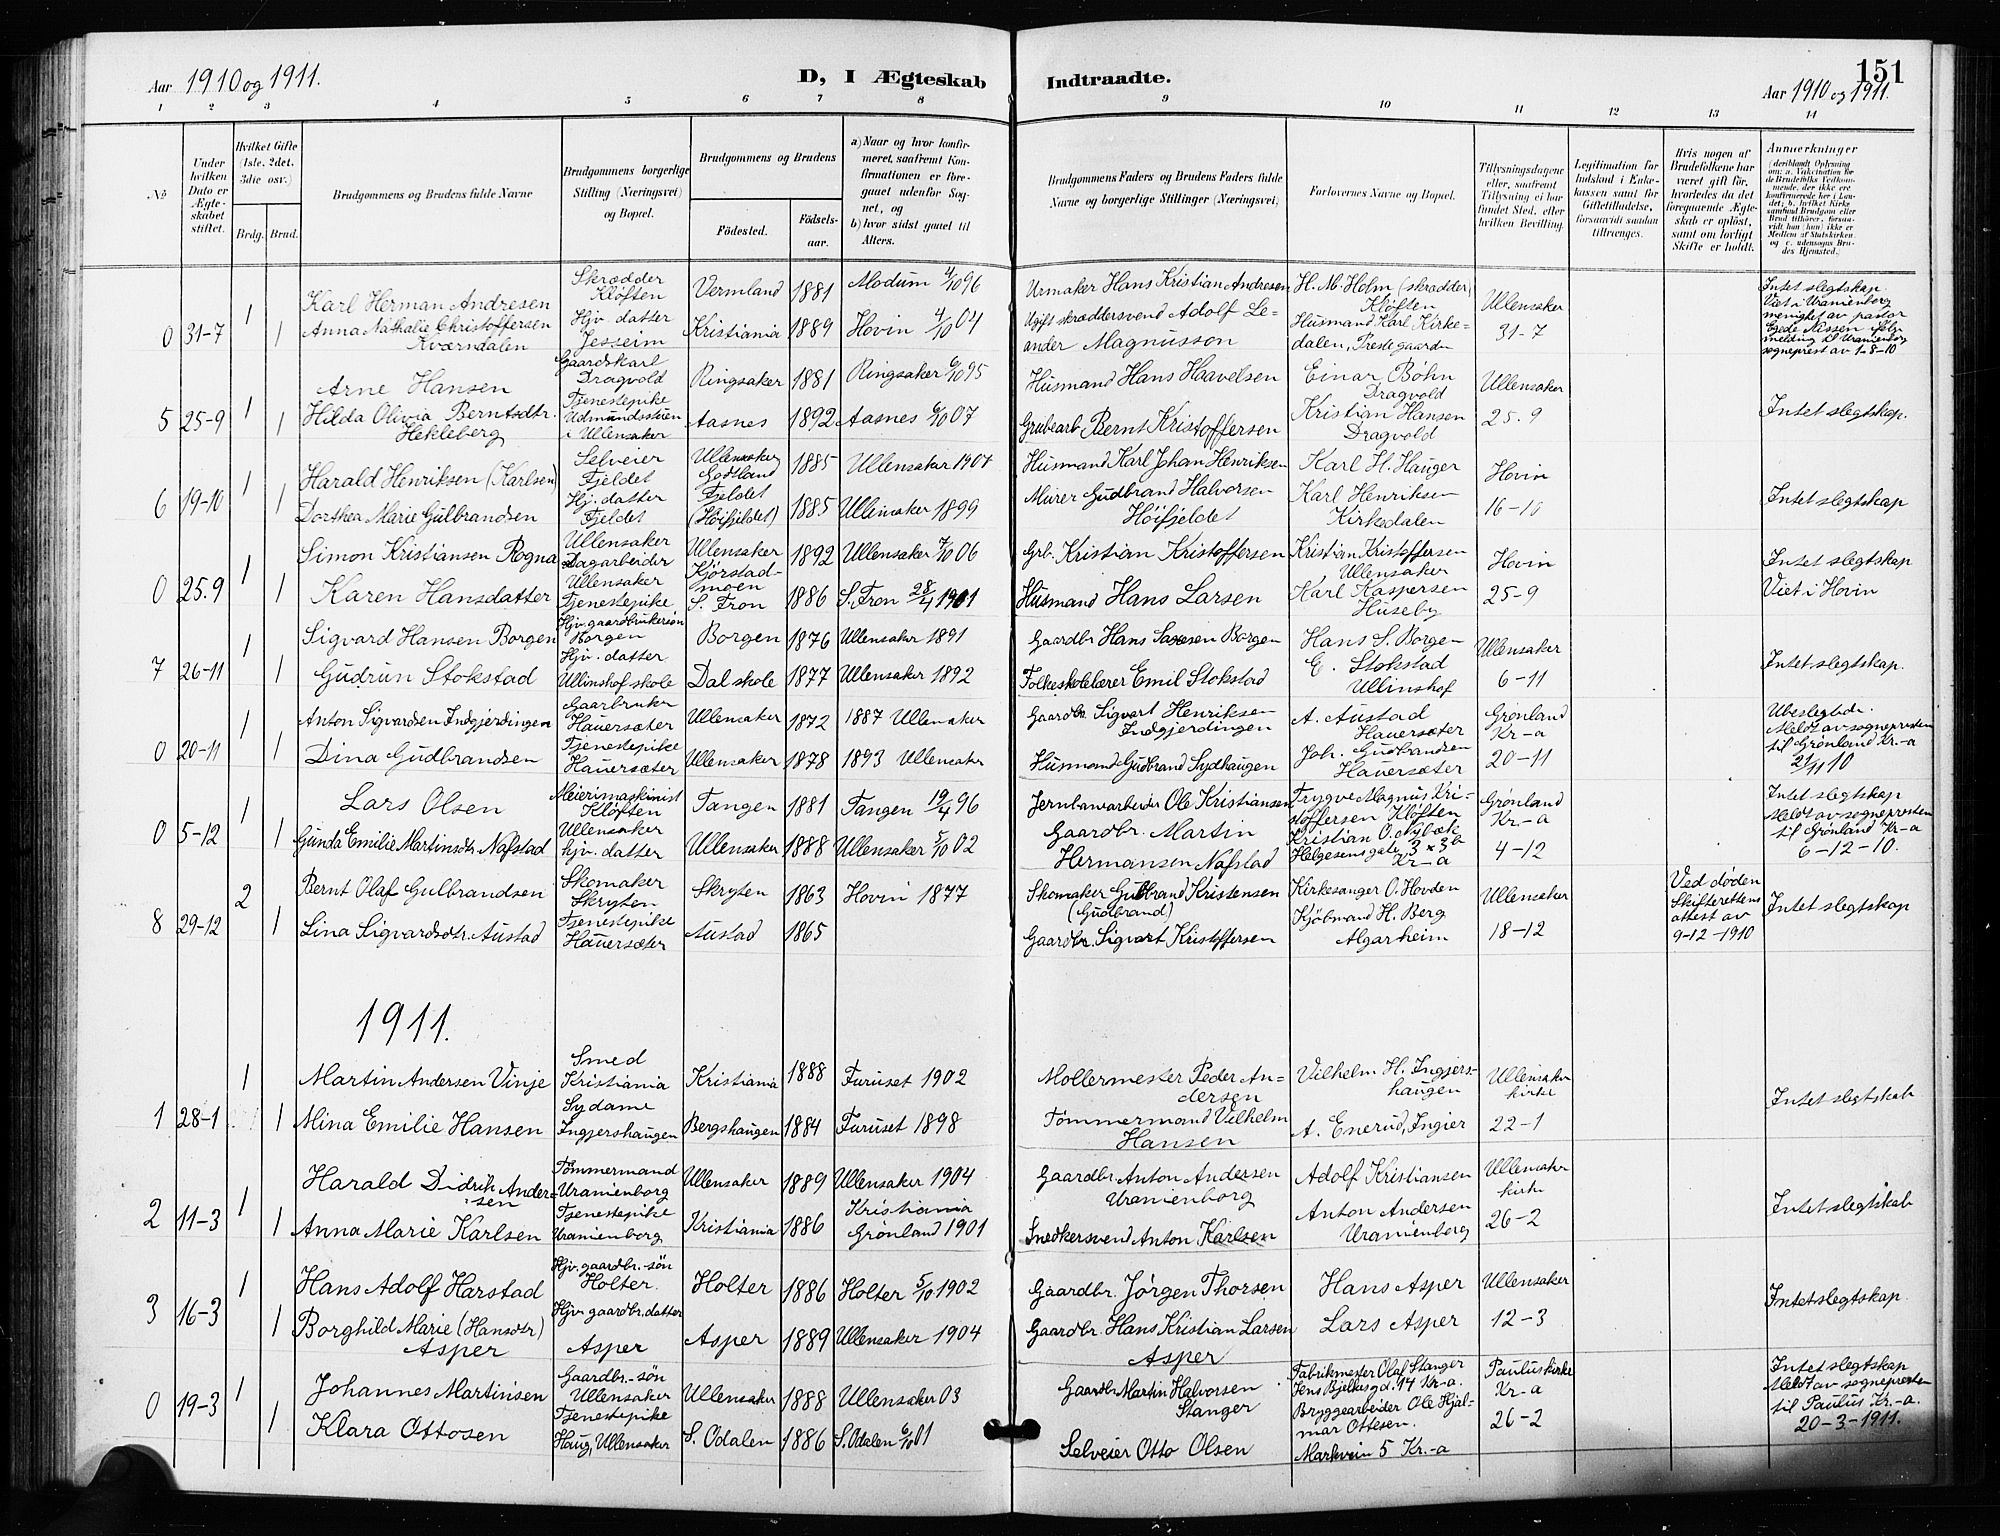 Aar 1910 og 1911.
D, I Ægteskab Indtraadte.
151
Aar 1910 og 1911.
1 2 3 4 5 6 7 8 9 10 11 12 13 14
No
Under hvilken Dato er Ægteskabet stiftet.
Hvilket Gifte (1ste, 2det, 3die osv.)
Brdg. Brud.
Brudgommens og Brudens fulde Navne
Brudgommens borgerlige Stilling (Næringsvei) og Bopæl.
Brudgommens og Brudens
Fødested.
Fødsels-aar.
a) Naar og hvor konfirmeret, saafremt Konfirmationen er foregaaet udenfor Sognet, og
b) hvor sidst gaaet til Alters.
Brudgommens Faders og Brudens Faders fulde Navne og borgerlige Stillinger (Næringsvei)
Forlovernes Navne og Bopæl.
Tillysningsdagene eller, saafremt Tillysning ei har fundet Sted, efter hvilken Bevilling.
Legitimation for Indskud i Enkekassen samt for Giftetilladelse, forsaavidt saadan tiltrænges.
Hvis nogen af Brudefolkene har været gift før, hvorledes da det foregaaende Ægteskab er opløst, samt om lovligt Skifte er holdt.
Anmerkninger (deriblandt Oplysning om: a. Vaccination for de Brudefolks Vedkommende, der ikke ere konfirmerede her i Landet; b. hvilket Kirkesamfund Brudgom eller Brud tilhører, forsaavidt han (hun) ikke er Medlem af Statskirken og c. udensogns Brudes Hjemsted.)
0 31-7 1 Karl Herman Andresen Skrædder Kløften Vermland 1881 Modum 4/10 96 Urmaker Hans Kristian Andresen H. M. Holm (skrædder) Kløften Ullensaker 31-7
Intet slegtskap Viet i Uranienborg menighet av pastor Egede Nissen ifølge melding til Uranienborg sogneprest av 1-8-10
1 Anna Nathalie Christoffersen Kværndalen Hjv. datter Jesseim Kristiania 1889 Hovin 4/10 04 Ugift skræddersvend Adolf Leander Magnusson Husmand Karl Kirkedalen, Prestegaarden
5 25-9 1 Arne Hansen Gaardskarl Dragvold Ringsaker 1881 Ringsaker 6/10 95 Husmand Hans Haavelsen Einar Bøhn Dragvold Ullensaker 25.9 Intet slegtskap.
1 Hilda Olivia Berntsdtr. Hekleberg Tjenestepike Udmundsstuen i Ullensaker Aasnes 1892 Aasnes 6/10 07 Grubearb Bernt Kristoffersen Kristian Hansen Dragvold
6 19-10 1 Harald Henriksen (Karlsen) Selveier Fjeldet Ullensaker Gotland 1885 Ullensaker 1907 Husmand Karl Johan Henriksen Karl H. Hauger Hovin 16-10 Intet slegtskap
1 Dorthea Marie Gulbrandsen Hj. datter Fjeldet Fjeldet (Høifjeldet) 1885 Ullensaker 1899 Murer Gudbrand Halvorsen Høifjeldet Karl Henriksen Kirkedalen
0 25.9 1 Simon Kristiansen Rogna Ullensaker Dagarbeider Ullensaker 1892 Ullensaker 7/10 06 Grb. Kristian Kristoffersen Kristian Kristoffersen Ullensaker Hovin 25-9 Intet slegtskap Viet i Hovin
1 Karen Hansdatter Ullensaker Tjenestepike Kjørstadmoen S. Fron 1886 S. Fron 28/4 1901 Husmand Hans Larsen Karl Kaspersen Huseby
7 26-11 1 Sigvard Hansen Borgen Hjv. gaardbrukersøn Borgen Borgen 1876 Ullensaker 1891 Gaardbr Hans Saxesen Borgen Hans S. Borgen Ullensaker 6-11 Intet slegtskap.
1 Gudrun Stokstad Hjv. datter Ullinshof skole Dal skole 1877 Ullensaker 1892 Folkeskolelærer Emil Stokstad E. Stokstad Ullinshof
0 20-11 1 Anton Sigvardsen Indgjerdingen Gaarbruker Hauersæter Ullensaker 1872 1887 Ullensaker Gaardbr. Sigvart Henriksen Indgjerdingen A. Austad Hauersæter Grønland Kr-a 20-11 Ubeslegtede. Meldt av sognepresten til Grønland Kr.-a 21/11 10
1 Dina Gudbrandsen Tjenestepike Hauersæter Ullensaker 1878 1893 Ullensaker Husmand Gudbrand Sydhaugen Joh. Gudbrandsen Hauersæter
0 5-12 1 Lars Olsen Meierimaskinist Kløften Tangen 1881 Tangen 19/4 96 Jernbanearbeider Ole Kristiansen Trygve Magnus Kristoffersen Kløften Grønland Kr-a 4-12 Intet slegtskap Meldt av sognepresten til Grønland Kr-a 6-12-10.
1 Gunda Emilie Martinsdtr. Nafstad Ullensaker Hjv. datter Ullensaker 1888 Ullensaker 5/10 02 Gaardbr. Martin Hermansen Nafstad Kristian O. Nybæk Helgesensgate 3 x 3b Kr-a
8 29-12 2 Bernt Olaf Gulbrandsen Skomaker Skryten Skryten 1863 Hovin 1877 Skomaker Gulbrand Kristensen (Gudbrand) Kirkesanger O. Hovden Ullensaker 18-12 Ved døden Skifterettens attest av 9-12-1910 Intet slegtskap
1 Lina Sigvardsdtr. Austad Tjenestepike Hauersæter Austad 1865 Gaardbr. Sigvart Kristoffersen Kjøbmand H. Berg Algarheim
1911.
1 28-1 1 Martin Andersen Vinje Smed Kristiania Kristiania 1888 Furuset 1902 Møllermester Peder Andersen Vilhelm H. Ingjershaugen Ullensaker kirke 22-1 Intet slegtskab
1 Mina Emilie Hansen Sydame Ingjershaugen Bergshaugen 1884 Furuset 1898 Tømmermand Vilhelm Hansen A. Enerud, Ingier
2 11-3 1 Harald Didrik Andersen Tømmermand Uranienborg Ullensaker 1889 Ullensaker 1904 Gaardbr. Anton Andersen Uranienborg Adolf Kristiansen Ullensaker kirke 26-2 Intet slegtskab
1 Anna Marie Karlsen Tjenestepike Uranienborg Kristiania 1886 Kristiania Grønland 1901 Snedkersvend Anton Karlsen Anton Andersen Uranienborg
3 16-3 1 Hans Adolf Harstad Hjv. gaardbr.-søn Holter. Holter 1886 Holter 5/10 1902 Gaardbr. Jørgen Thorsen Hans Asper Ullensaker 12-3 Intet slegtskap
1 Borghild Marie (Hansdtr) Asper Hjv. gaardbr. datter Asper Asper 1889 Ullensaker 1904 Gaardbr. Hans Kristian Larsen Asper Lars Asper
0 19-3 1 Johannes Martinsen Gaardbr.-søn Ullensaker Ullensaker 1888 Ullensaker 03 Gaardbr. Martin Halvorsen Stanger Fabrikmester Olaf Stanger Jens Bjelkesgd. 14 Kr-a. Pauluskirke Kr-a 26-2 Intet slegtskap Meldt av sognepresten til Paulus Kr.-a. 20-3-1911.
1 Klara Ottosen Tjenestepike Haug, Ullensaker S. Odalen 1886 S. Odalen 6/10 01 Selveier Otto Olsen Bryggearbeider Ole Hjalmar Ottesen. Markvein 5 Kr.-a